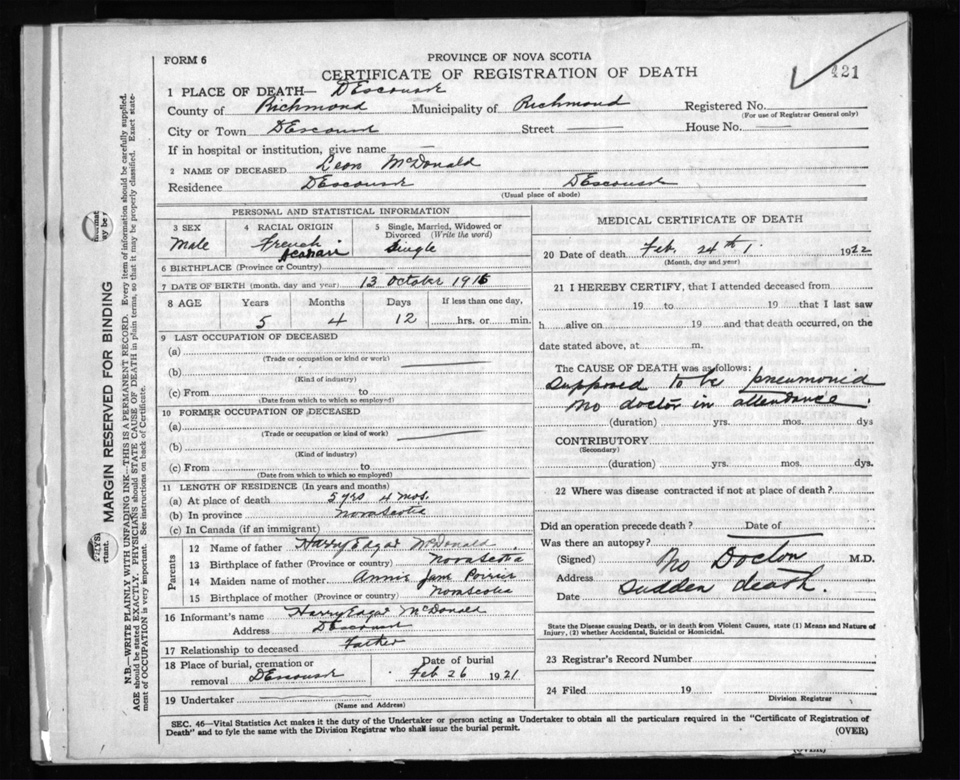 FORM 6
PROVINCE OF NOVA SCOTIA
CERTIFICATE OF REGISTRATION OF DEATH
421
1 PLACE OF DEATH— DEscousse
County of Richmond Municipality of Richmond Registered No.
(For use of Registrar General only)
City or Town DEscousse Street — House No. —
If in hospital or institution, give name —
2 NAME OF DECEASED Leon McDonald
Residence DEscousse DEscousse
(Usual place of abode)
PERSONAL AND STATISTICAL INFORMATION
3 SEX 4 RACIAL ORIGIN 5 Single, Married, Widowed or Divorced (Write the word)
Male French Acadian Single
6 BIRTHPLACE (Province or Country)
7 DATE OF BIRTH (month, day and year) 13 October 1916
8 AGE Years Months Days If less than one day,
5 4 12 hrs. or min.
9 LAST OCCUPATION OF DECEASED
(a)
(Trade or occupation or kind or work)
(b)
(Kind of industry)
(c) From to
(Date from which to which so employed)
10 FORMER OCCUPATION OF DECEASED
(a)
(Trade or occupation or kind of work)
(b)
(Kind of industry)
(c) From to
(Date from which to which so employed)
11 LENGTH OF RESIDENCE (In years and months)
(a) At place of death 5 yrs 4 mos.
(b) In province Nova Scotia
(c) In Canada (if an immigrant)
Parents
12 Name of father Harry Edgar McDonald
13 Birthplace of father (Province or country) Nova Scotia
14 Maiden name of mother Annie Jane Poirier
15 Birthplace of mother (Province or country) Nova Scotia
16 Informant's name Harry Edgar McDonald
Address DEscousse
17 Relationship to deceased Father
18 Place of burial, cremation or removal DEscousse Date of burial Feb 26 1921
19 Undertaker
(Name and Address)
MEDICAL CERTIFICATE OF DEATH
20 Date of death Feb. 24th 1922
(Month, day and year)
21 I HEREBY CERTIFY, that I attended deceased from
19 to 19 that I last saw
h alive on 19 and that death occurred, on the
date stated above, at m.
The CAUSE OF DEATH was as follows:
Supposed to be pneumonia
no doctor in attendance.
(duration) yrs. mos. dys
CONTRIBUTORY
(Secondary)
(duration) yrs. mos. dys.
22 Where was disease contracted if not at place of death?
Did an operation precede death? Date of
Was there an autopsy?
(Signed) No Doctor M.D.
Address
Sudden death.
Date
State the Disease causing Death, or in death from Violent Causes, state (1) Means and Nature of
Injury, (2) whether Accidental, Suicidal or Homicidal.
23 Registrar's Record Number
24 Filed 19
Division Registrar
SEC. 46—Vital Statistics Act makes it the duty of the Undertaker or person acting as Undertaker to obtain all the particulars required in the "Certificate of Registration of
Death" and to fyle the same with the Division Registrar who shall issue the burial permit.
(OVER)
(OVER)
MARGIN RESERVED FOR BINDING
N.B.—WRITE PLAINLY WITH UNFADING INK—THIS IS A PERMANENT RECORD. Every item of information should be carefully supplied.
AGE should be stated EXACTLY. PHYSICIANS should STATE CAUSE OF DEATH in plain terms, so that it may be properly classified. Exact state-
ment of OCCUPATION is very important. See instructions on back of Certificate.